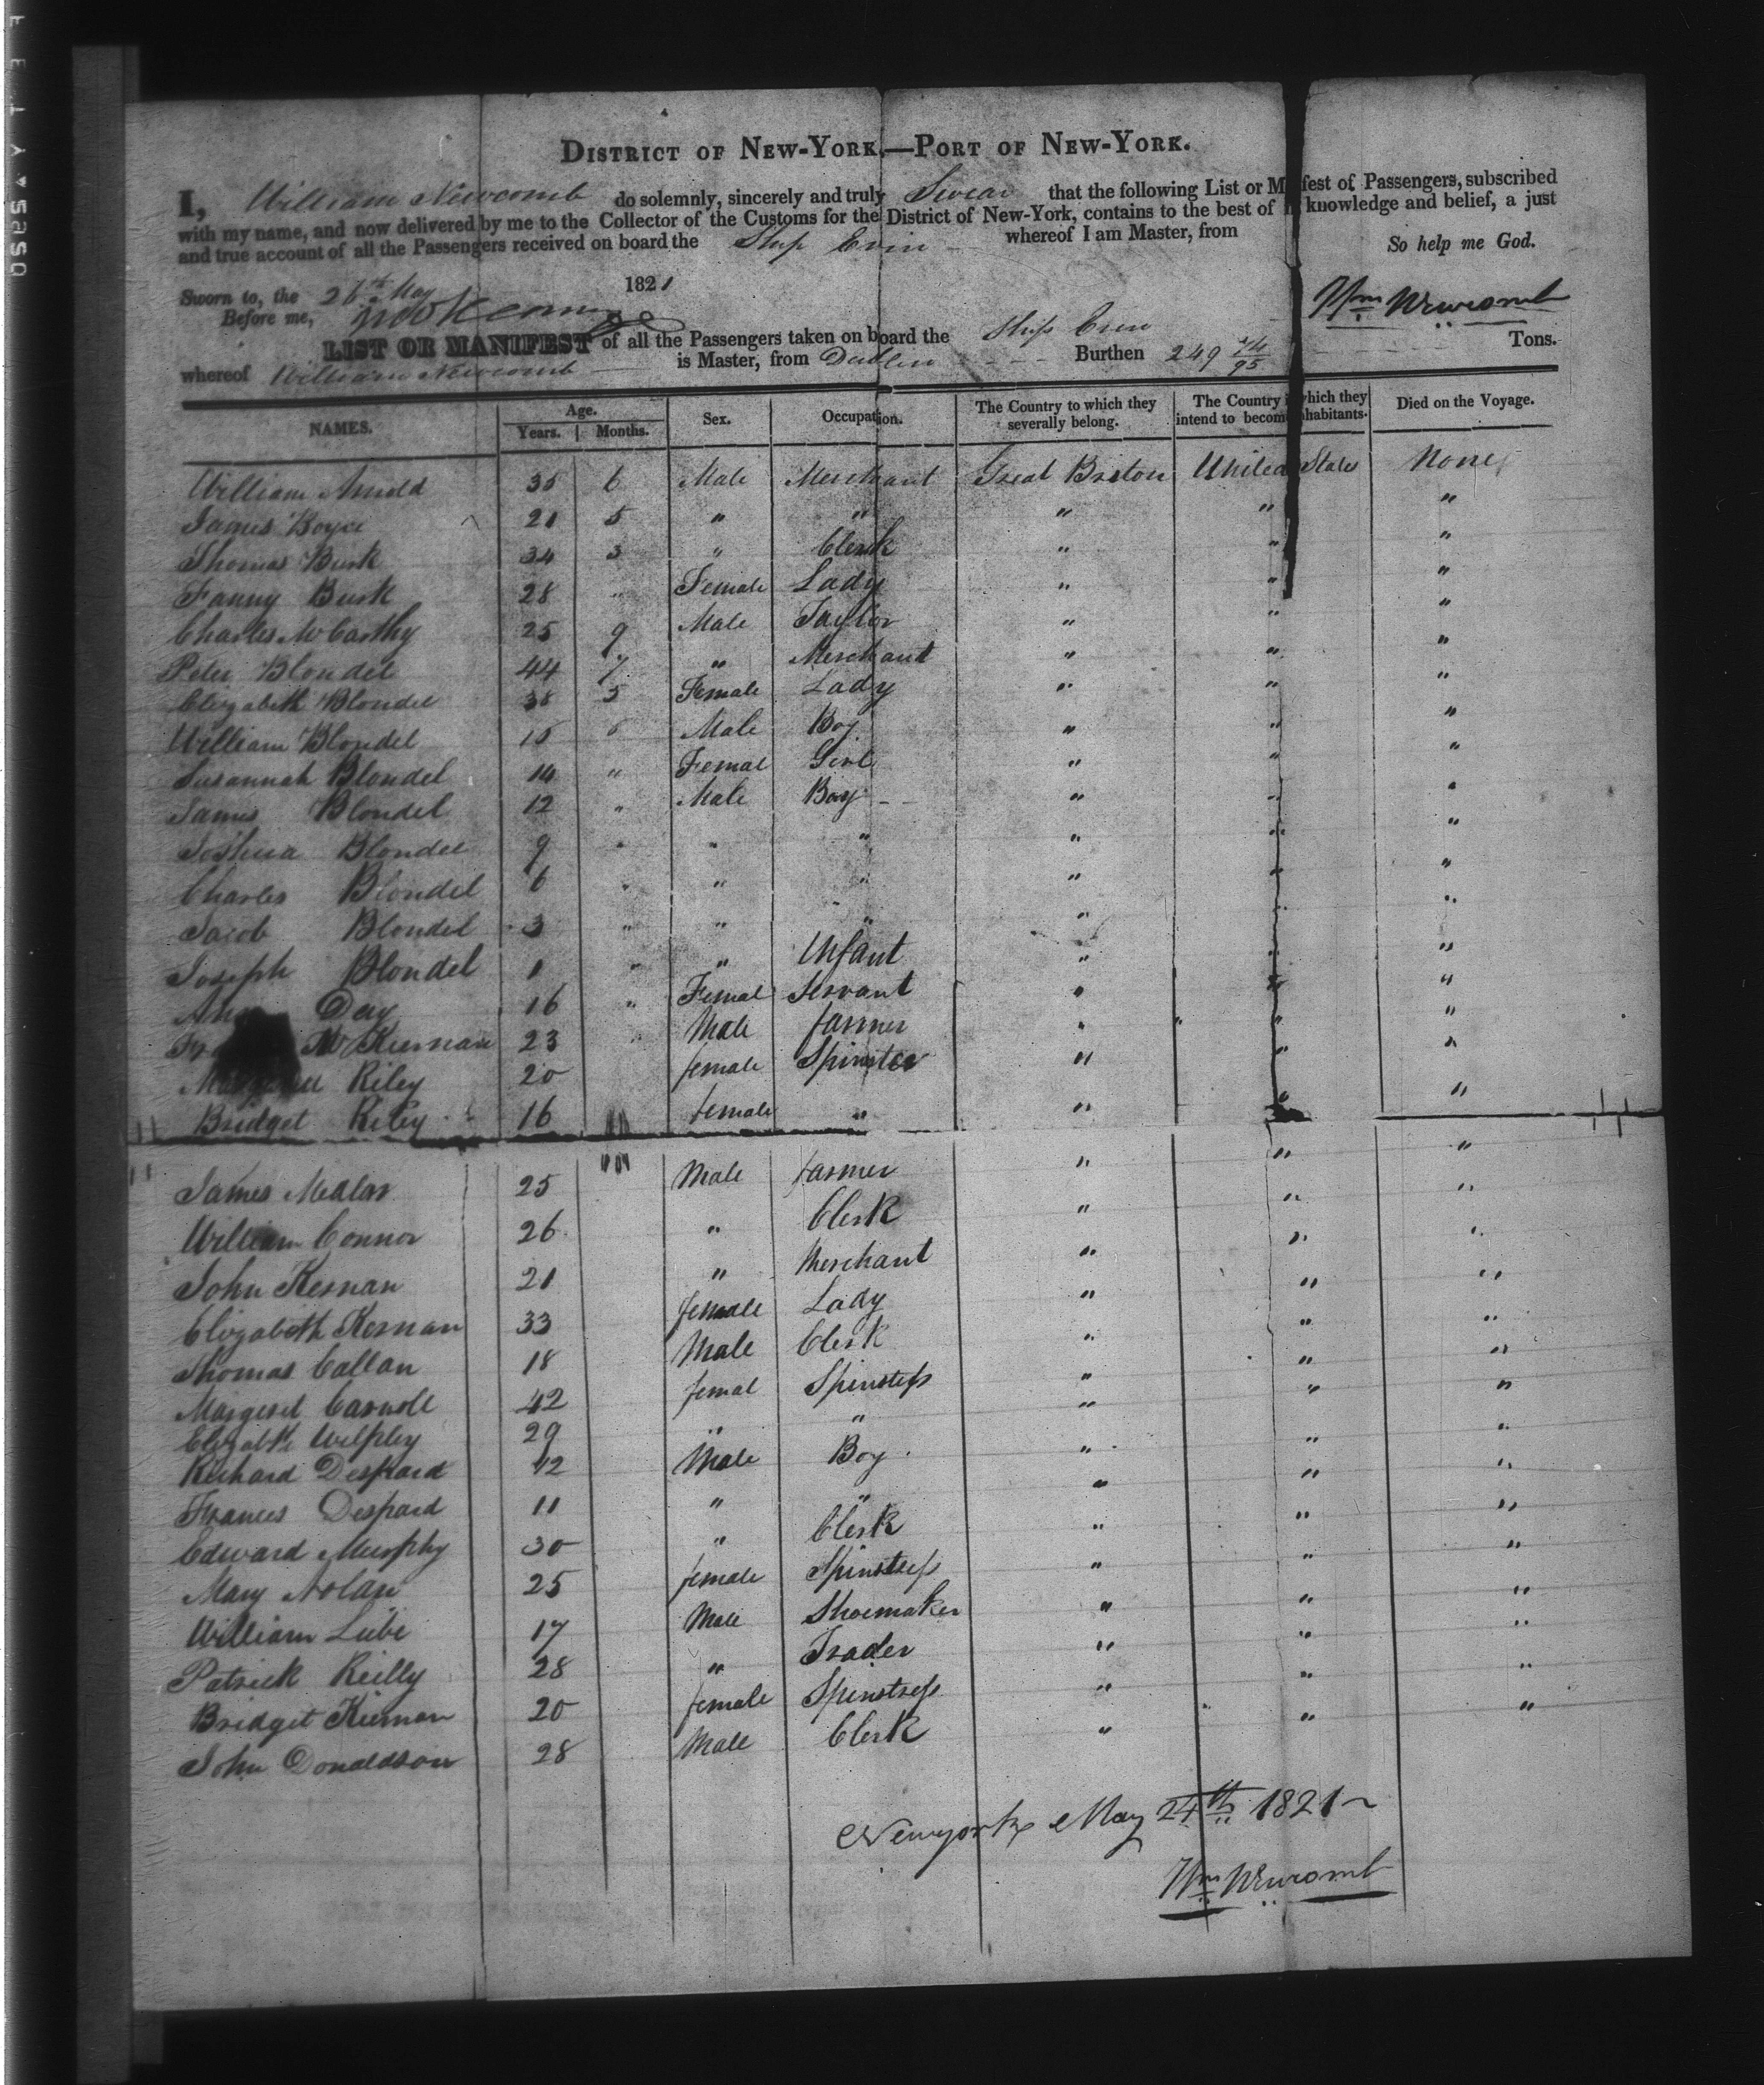 DISTRICT OF NEW-YORK,—PORT OF NEW-YORK.
I, William Newcomb do solemnly, sincerely and truly Swear that the following List or M fest of Passengers, subscribed
with my name, and now delivered by me to the Collector of the Customs for the District of New-York, contains to the best of knowledge and belief, a just
and true account of all the Passengers received on board the Ship Erin whereof I am Master, from
So help me God.
Sworn to, the 26th May 1821
Before me,
Wm Newcomb
LIST OR MANIFEST of all the Passengers taken on board the Ship Erin
whereof William Newcomb is Master, from Dublin Burthen 249 74/95 Tons.
NAMES. Age. Years. Months. Sex. Occupation. The Country to which they severally belong. The Country i which they intend to becom nhabitants. Died on the Voyage.
William Arnold 35 6 Male Merchant Great Briton United States None
James Boyce 21 5 " " " " "
Thomas Burk 34 3 " Clerk " " "
Fanny Burk 28 " Female Lady " " "
Charles McCarthy 25 9 Male Taylor " " "
Peter Blondel 44 7 " Merchant " " "
Elizabeth Blondel 38 5 Female Lady " " "
William Blondel 15 6 Male Boy " " "
Susannah Blondel 14 " Femal Girl " " "
James Blondel 12 " Male Boy " " "
Joshua Blondel 9 " " " " " "
Charles Blondel 6 " " " " " "
Jacob Blondel 3 " " " " " "
Joseph Blondel 1 " " Infant " " "
Ann Day 16 " Femal Servant " " "
McKiernan 23 " Male farmer " " "
Riley 20 female Spinster " " "
Bridget Riley 16 female " " " "
James Medlar 25 Male farmer " " "
William Connor 26 " Clerk " " "
John Kernan 21 " Merchant " " "
Elizabeth Kernan 33 female Lady " " "
Thomas Callan 18 Male Clerk " " "
Margeret Carroll 42 femal Spinstess " " "
Elizabth 29 " " " " "
Richard Despard 12 Male Boy " " "
Frances Despard 11 " " " " "
Edward Murphy 30 " Clerk " " "
Mary Nolan 25 female Spinstess " " "
William Lube 17 Male Shoemaker " " "
Patrick Reilly 28 " Trader " " "
Bridget Kiernan 20 female Spinstress " " "
John Donaldson 28 Male Clerk " " "
Newyork May 24th 1821
Wm Newcomb